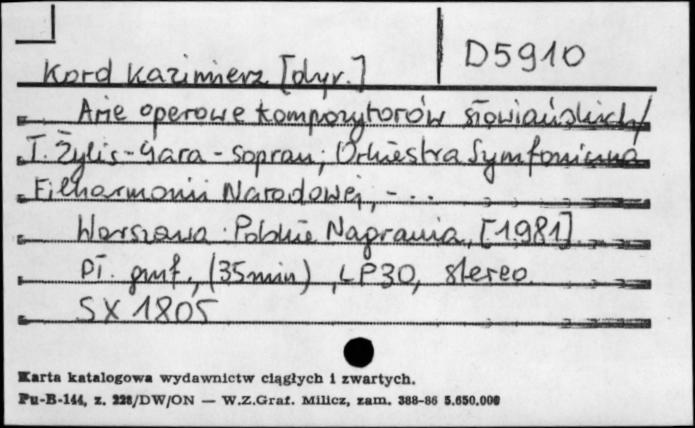 D5910
Kord Kazimierz [dyr.]
Arie operowe kompozytorów słowiańskich/
T. Żylis-Gara - sopran; Orkiestra Symfoniczna
Filharmonii Narodowej, - ...
Warszawa : Polskie Nagrania, [1981].
Pł. gmf., (35min), LP30, stereo.
SX 1805
Karta katalogowa wydawnictw ciągłych i zwartych.
Pu-B-144, z. 228/DW/ON — W.Z.Graf. Milicz, zam. 388-86 5.650.000